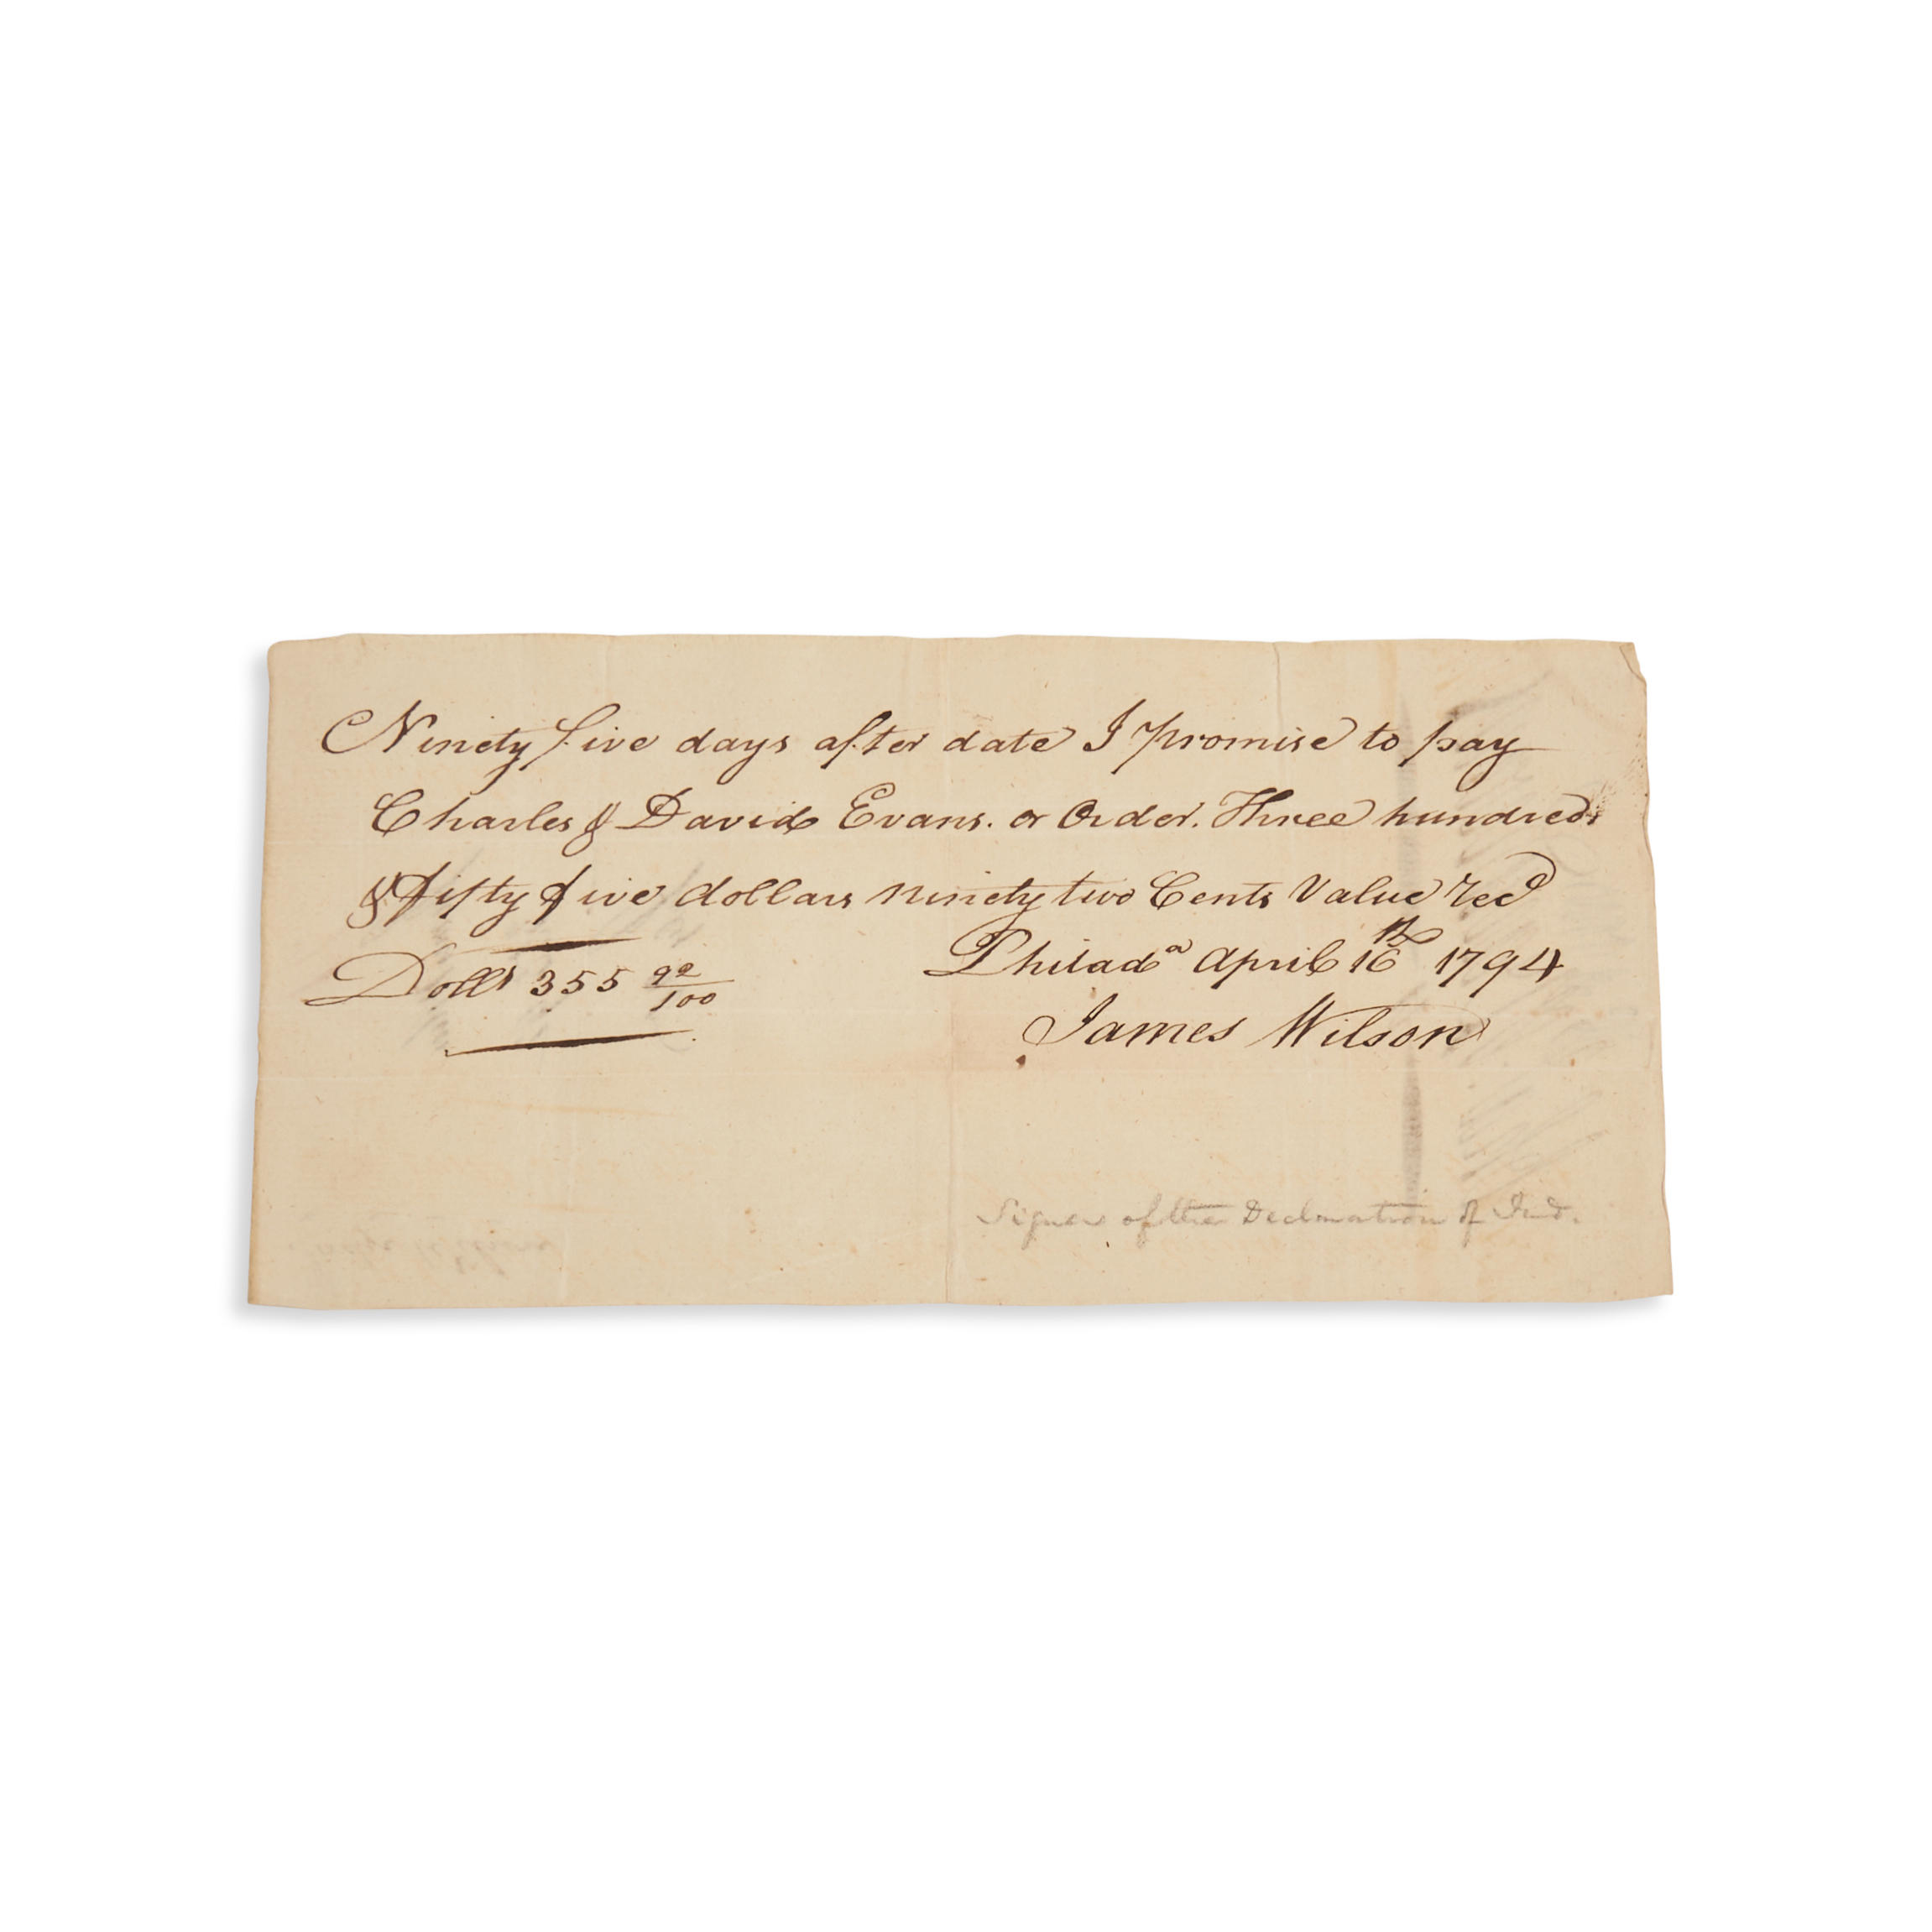 Ninety five days after date I promise to pay
Charles & David Evans. or Order. Three hundred
& fifty five dollars ninety two Cents Value Recd
Philada April 16th 1794
Dolls 355 92/100
James Wilson
Signer of the Declaration of Ind.